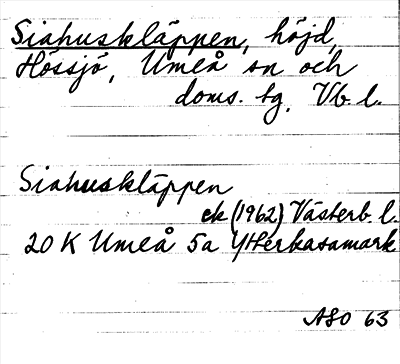 Siahuskläppen, höjd,
Hössjö, Umeå sn och
doms. tg, Vb. l.
Siahuskläppen
ek (1962) Västerb. l.
20 K Umeå 5a Ytterkasamark
ASO 63